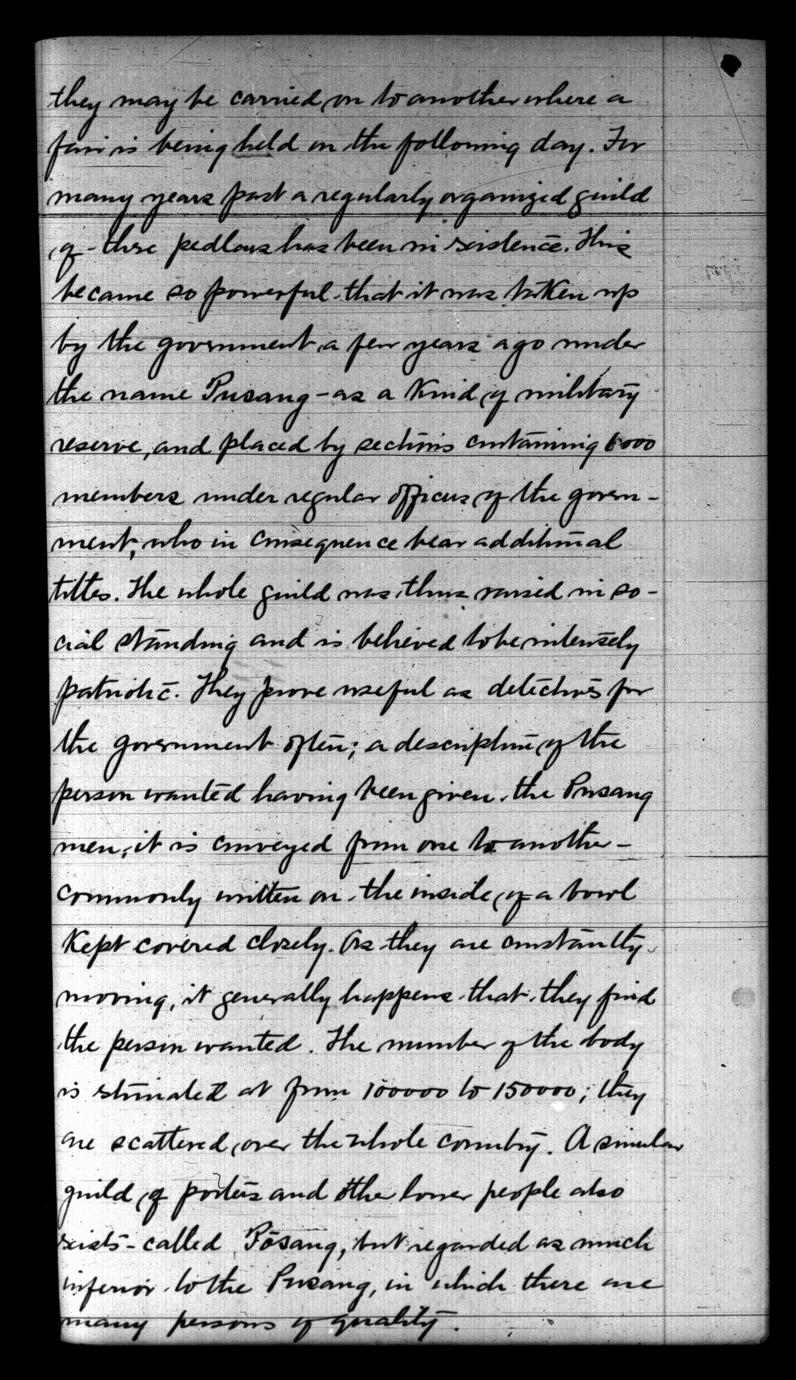 they may be carried on to another where a
fair is being held on the following day. For
many years past a regularly organized guild
of these pedlars has been in existence. This
became so powerful that it was taken up
by the government a few years ago under
the name Pusang - as a kind of military
reserve, and placed by sections containing 1000
members under regular officers of the govern-
ment, who in consequence bear additional
titles. The whole guild was thus raised in so-
cial standing and is believed to be intensely
patriotic. They prove useful as detectives for
the government often; a description of the
person wanted having been given the Pusang
men, it is conveyed from one to another -
commonly written on the inside of a bowl
kept covered closely. As they are constantly
moving, it generally happens that they find
the person wanted. The number of the body
is estimated at from 100000 to 150000; they
are scattered over the whole country. A similar
guild of porters and other lower people also
exists - called Pōsang, but regarded as much
inferior to the Pusang, in which there are
many persons of quality.